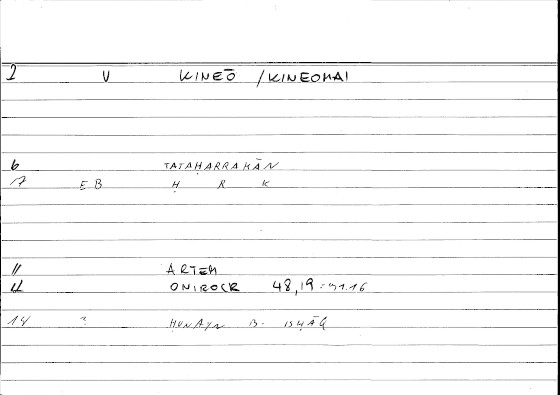 2 V KINEŌ /KINEOMAI
6 TATAḤARRAKĀN
17 EB Ḥ R K
11 ARTEM
12 ONIROCR 48,19 = 91.16
14 ḤUNAYN B. ISḤĀQ